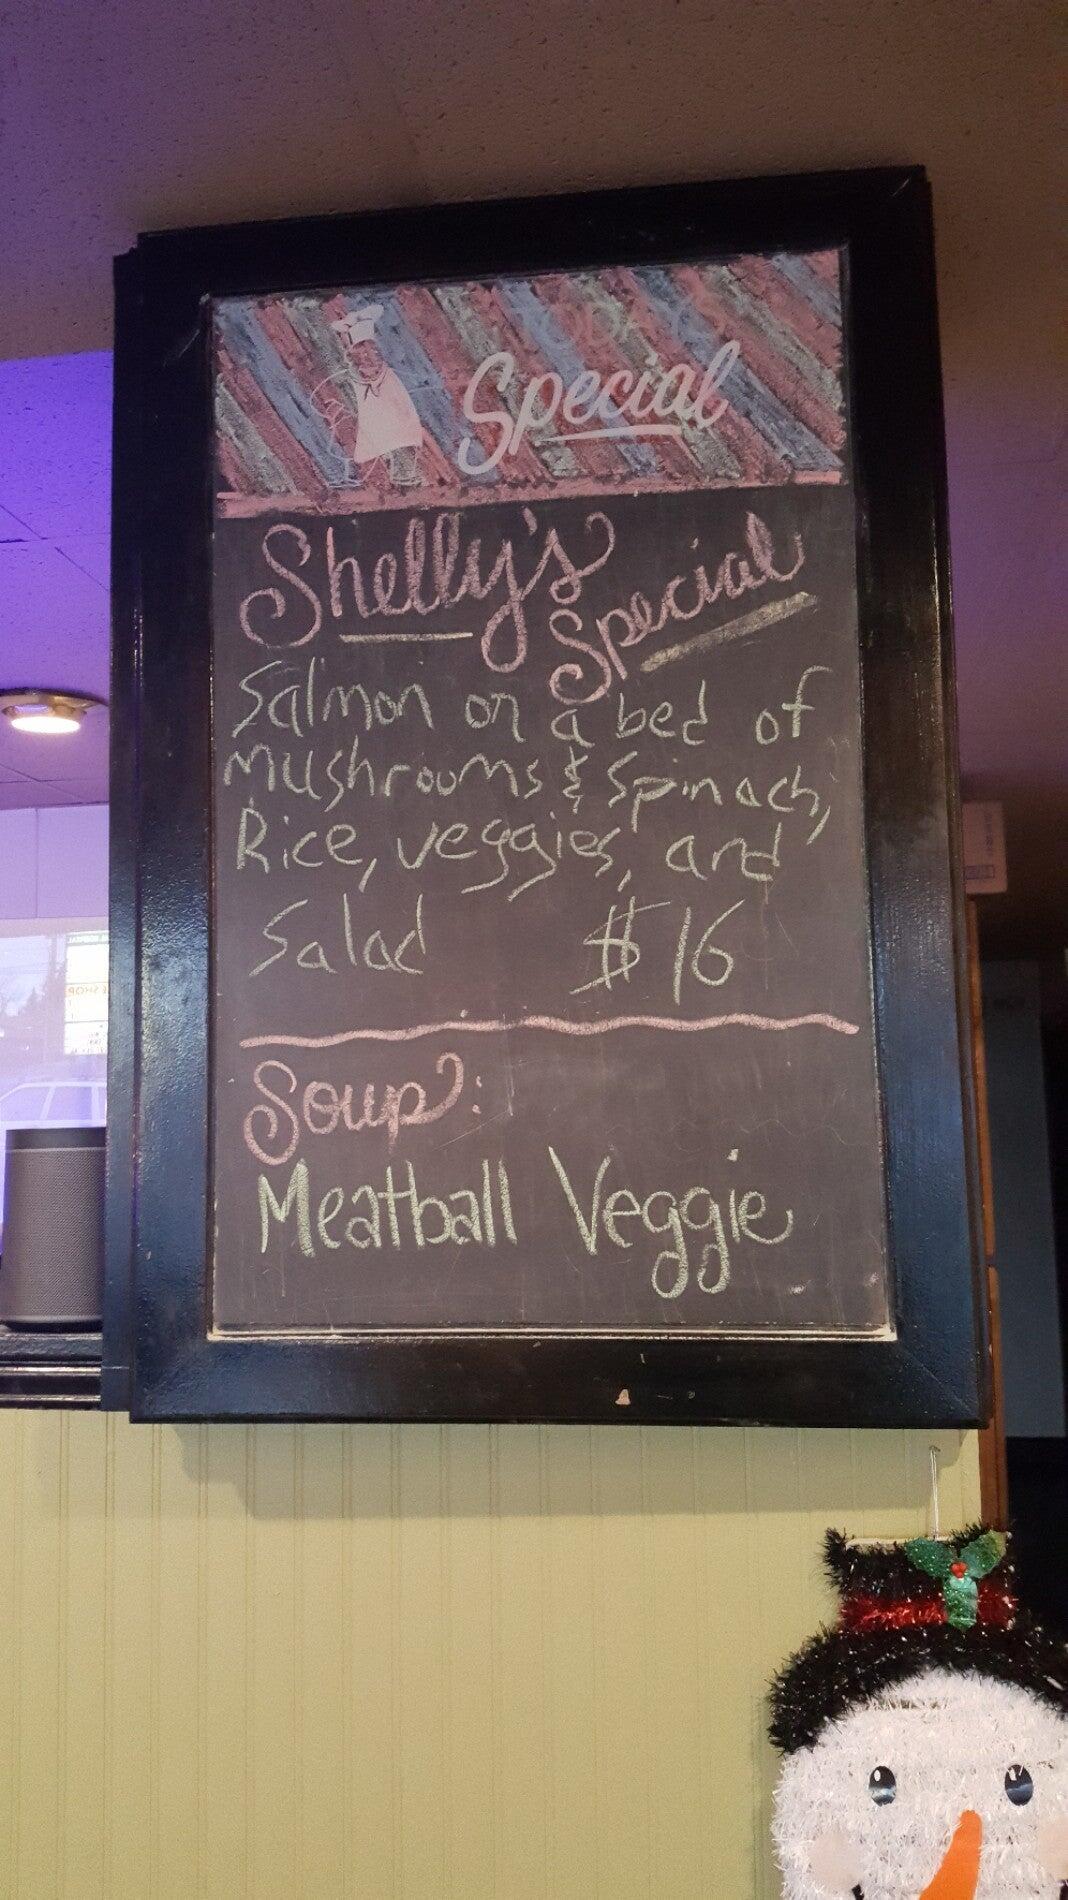 Special
Shelly's
Special
Salmon on a bed of
Mushrooms & Spinach,
Rice, veggies, and
Salad $16
Soup:
Meatball Veggie